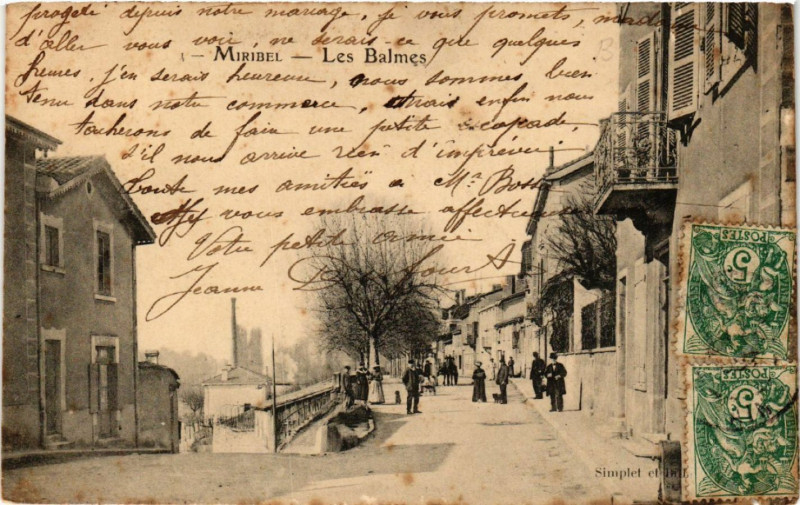 projeté depuis notre mariage, je vous promets, madame
d'aller vous voir, ne serais-ce que quelques
MIRIBEL — Les Balmes
heures. j'en serais heureuse, nous sommes bien
tenu dans notre commerce, mais enfin nous
tacherons de faire une petite escapade,
s'il nous arrive rien d'imprévu.
Toute mes amitiés a Mr Bosse
vous embrasse affectueusement
Votre petite amie
Jeanne
POSTES
5
POSTES
5
Simplet et